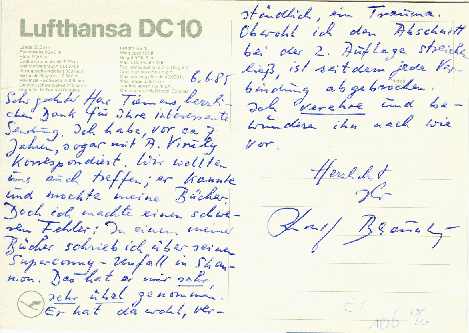 Lufthansa DC10
6.1.85
Sehr geehrter Herr Tiemans, herzli-
chen Dank für Ihre interessante
Sendung. Ich habe, vor ca 7
Jahren, sogar mit A. Viruly
korrespondiert. Wir wollten
uns auch treffen; er kannte
und mochte meine Bücher.
Doch ich machte einen schwe-
ren Fehler: In einem meiner
Bücher schrieb ich über seinen
Superconny-Unfall in Shan-
non. Das hat er mir sehr,
sehr übel genommen.
Er hat da wohl, ver-
ständlich, ein Trauma.
Obwohl ich den Abschnitt
bei der 2. Auflage streichen
ließ, ist seitdem jede Ver-
bindung abgebrochen.
Ich verehre und be-
wundere ihn nach wie
vor.
Herzlichst
Ihr